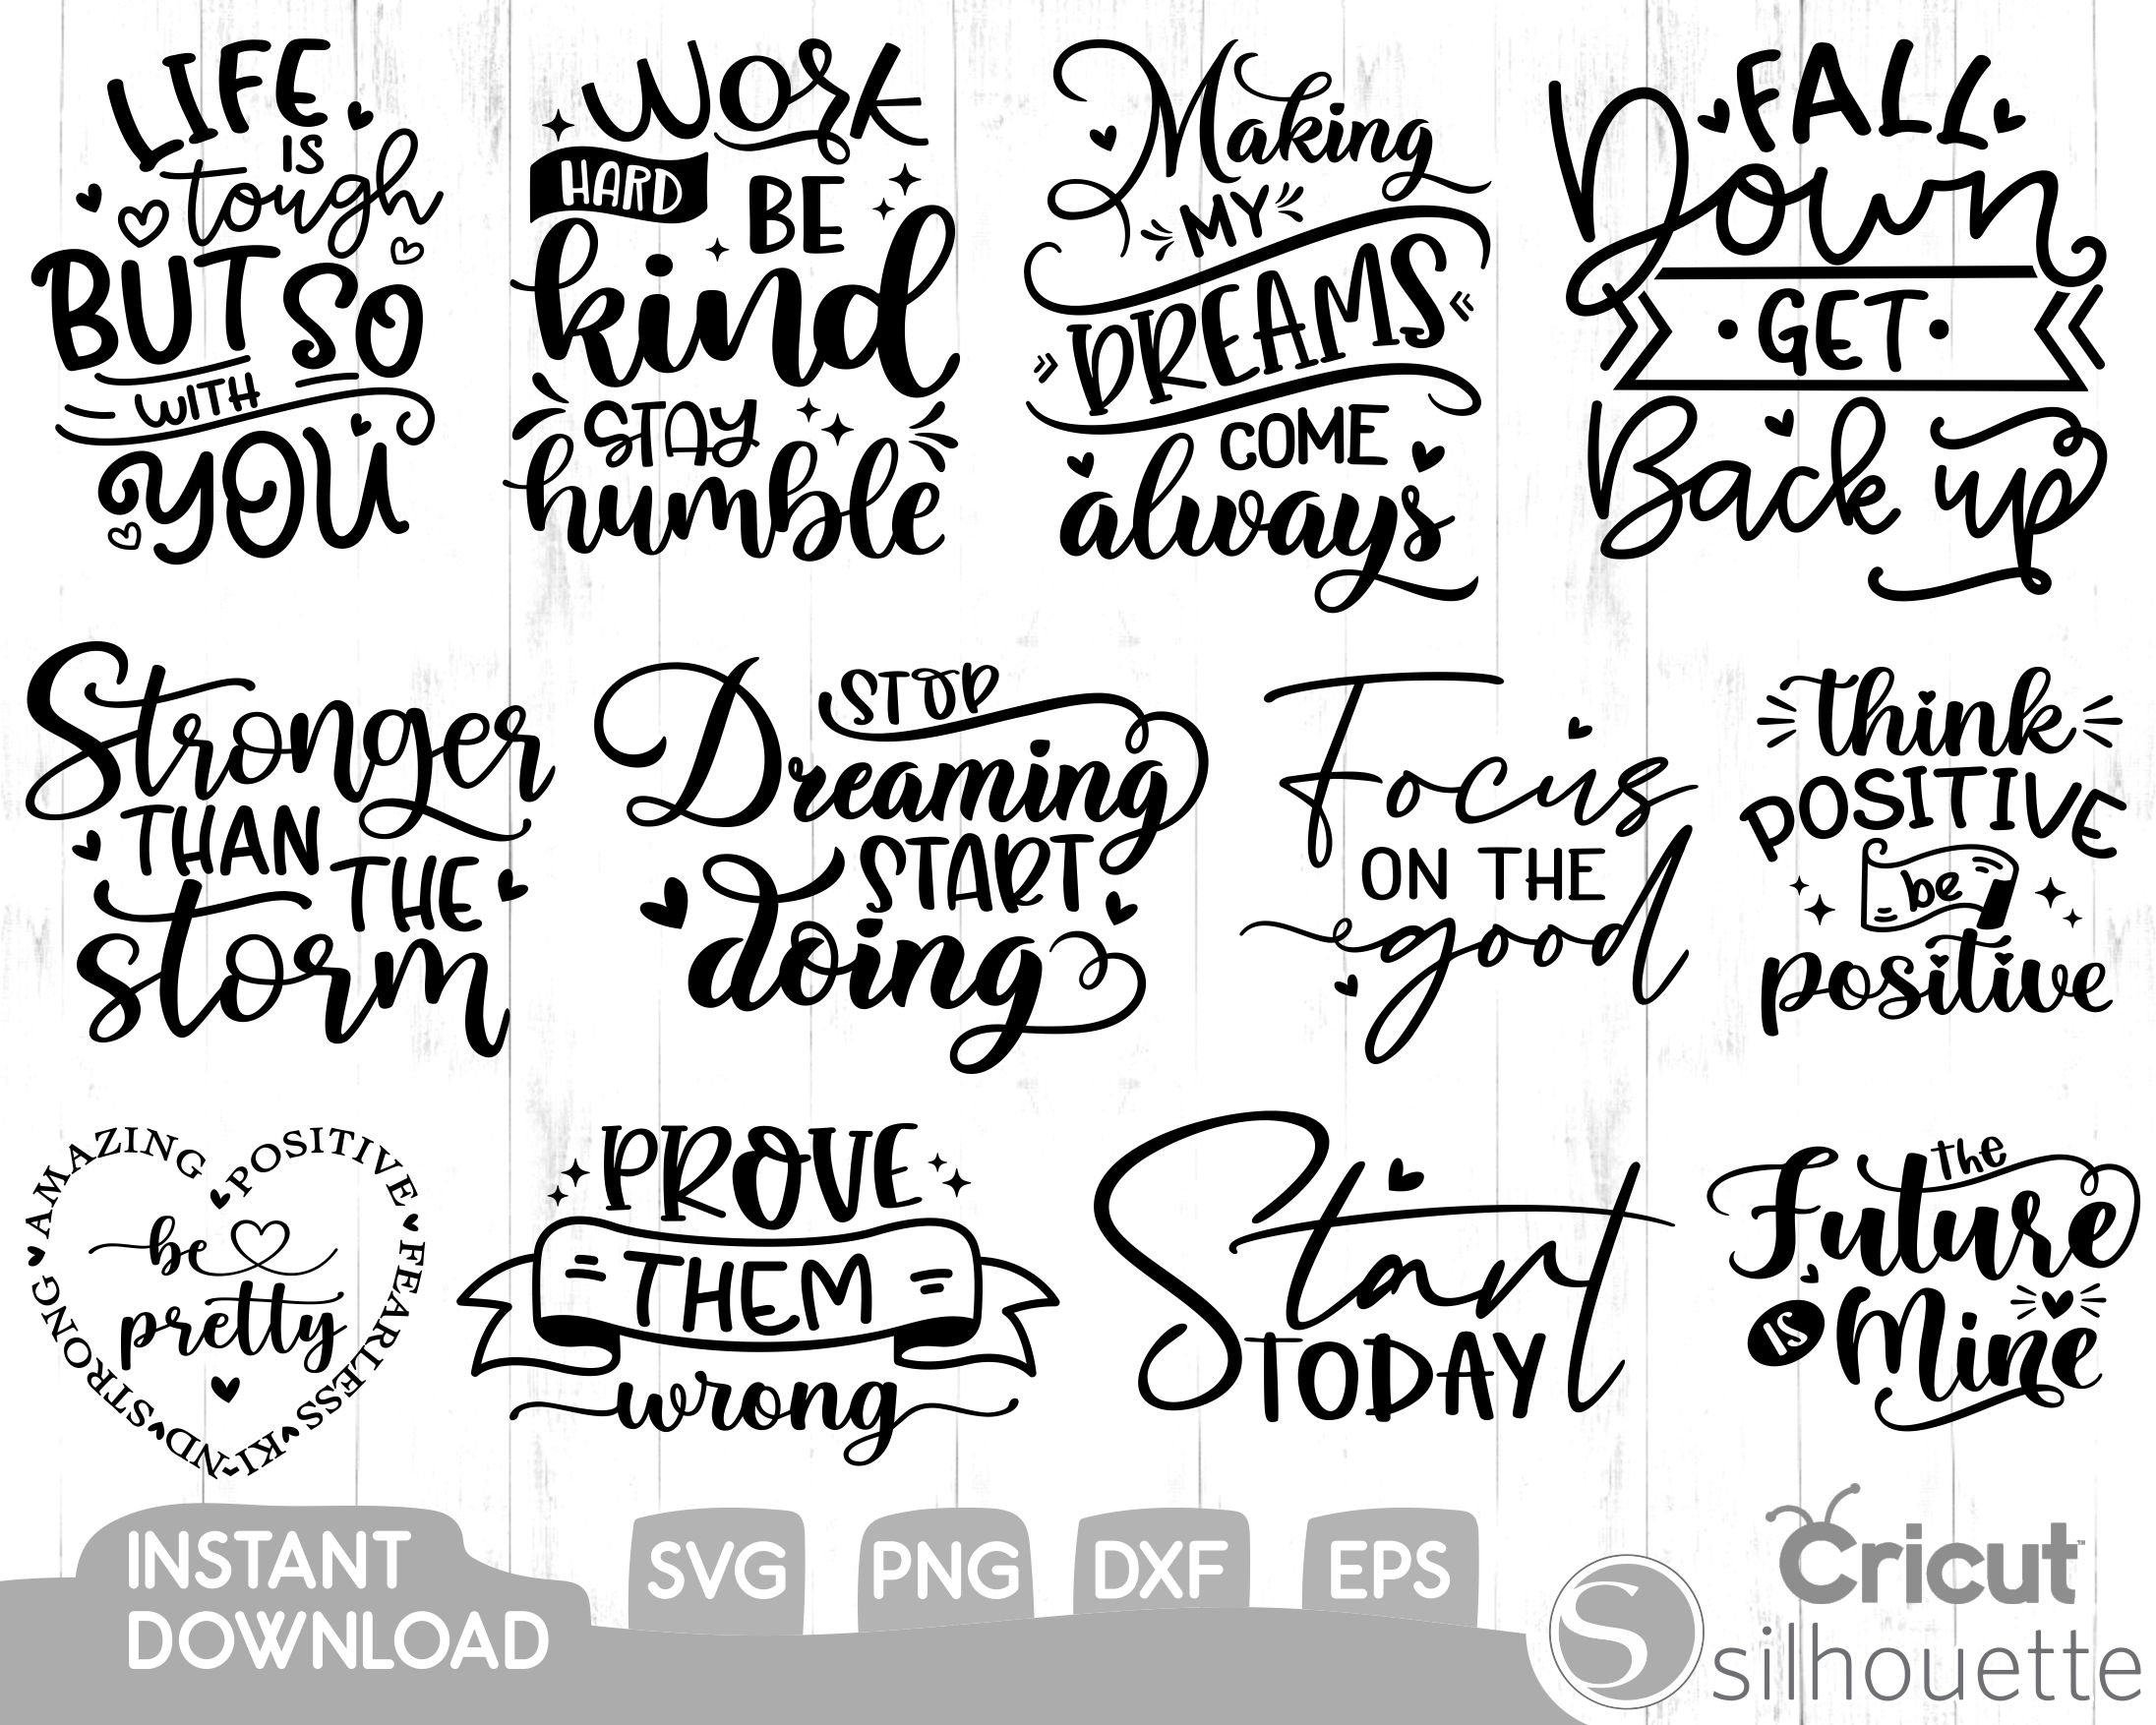 LIFE
IS
tough
BUT SO
WITH
YOU
Work
HARD
BE
kind
STAY
humble
Making
MY
DREAMS
COME
always
FALL
Down
GET
Back up
Stronger
THAN
THE
storm
STOP
Dreaming
START
doing
Focus
ON THE
good
think
POSITIVE
be
positive
AMAZING POSITIVE FEARLESS KIND STRONG
be
pretty
PROVE
THEM
wrong
Start
TODAY
the
Future
IS
Mine
INSTANT
DOWNLOAD
SVG
PNG
DXF
EPS
Cricut™
S
silhouette